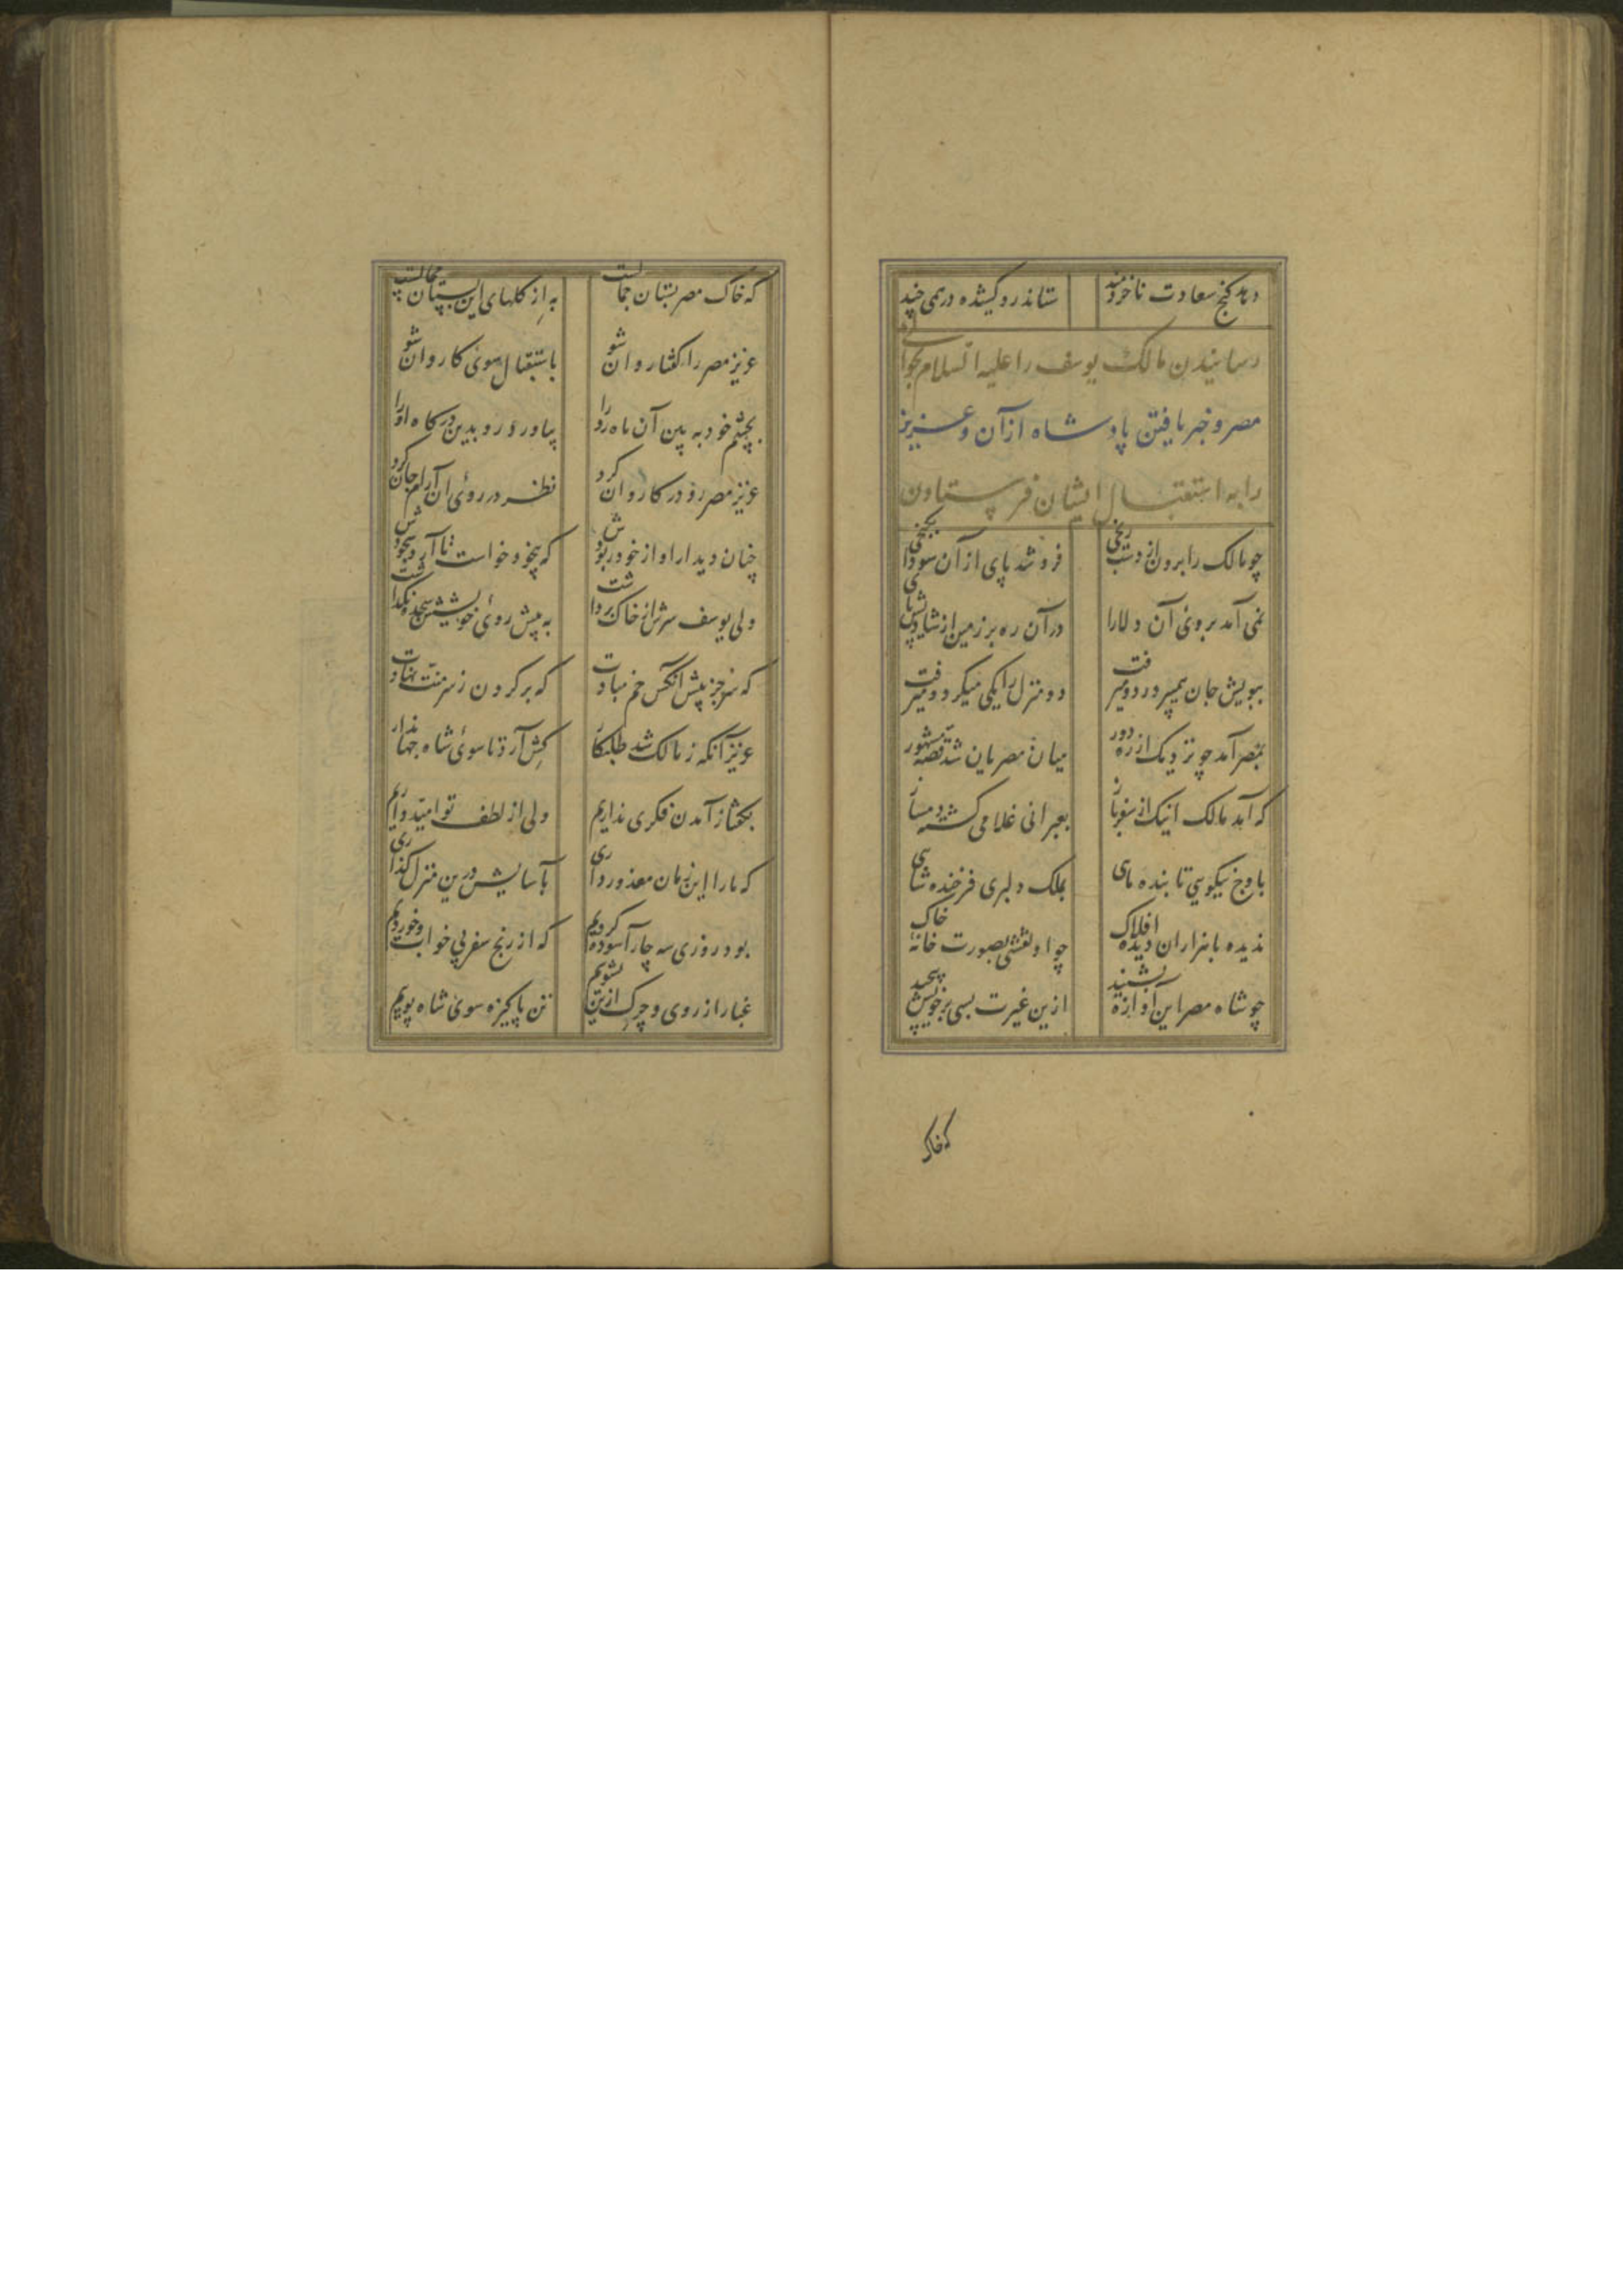 دهد گنج سعادت ناخردمند ستاند رو کشیده درمی چند
رسانیدن مالک یوسف را علیه السلام بحوالی
مصر و خبر یافتن پادشاه از آن و عزیز
را به استقبال ایشان فرستادن
چو مالک را برون از دست رنجی فرو شد پای از آن سودا بگنجی
نمی آمد بروی آن دلارا در آن ره بر زمین از شادیش پای
ببویش جان همیپرورد و میرفت دو منزل را یکی میکرد و میرفت
بمصر آمد چو نزدیک از ره دور میان مصریان شد قصه مشهور
که آمد مالک اینک از سفر باز بعبرانی غلامی گشته دمساز
باوج نیکویی تابنده ماهی بملک دلبری فرخنده شاهی
ندیده با هزاران دیده افلاک چو او نقشی بصورت خانه خاک
چو شاه مصر این آوازه بشنید ازین غیرت بسی بر خویش پیچید
که خاک
که خاک مصر بستان جمالست به از گلهای این بستان محالست
عزیز مصر را گفتا روان شو باستقبال سوی کاروان شو
بچشم خود به بین آن ماه رو را بیاور رو بدین درگاه او را
عزیز مصر رو در کاروان کرد نظر در روی آن آرام جان کرد
چنان دیدار او از خود ربودش که بیخود خواست تا آرد سجودش
ولی یوسف سرش از خاک برداشت به پیش روی خویشش سجده نگذاشت
که سر جز پیش آنکس خم مبادت که بر گردن ز سر منت نهادت
عزیز آنگه ز مالک شد طلبکار کش آرد تا سوی شاه جهاندار
بگفتا ز آمدن فکری نداریم ولی از لطف تو امیدواریم
که ما را این زمان معذور داری بآسایش درین منزل گذاری
بود روزی سه چار آسوده گردیم که از رنج سفر بی خواب و خوردیم
غبار از روی و چرک از تن بشویم تن پاکیزه سوی شاه پوییم